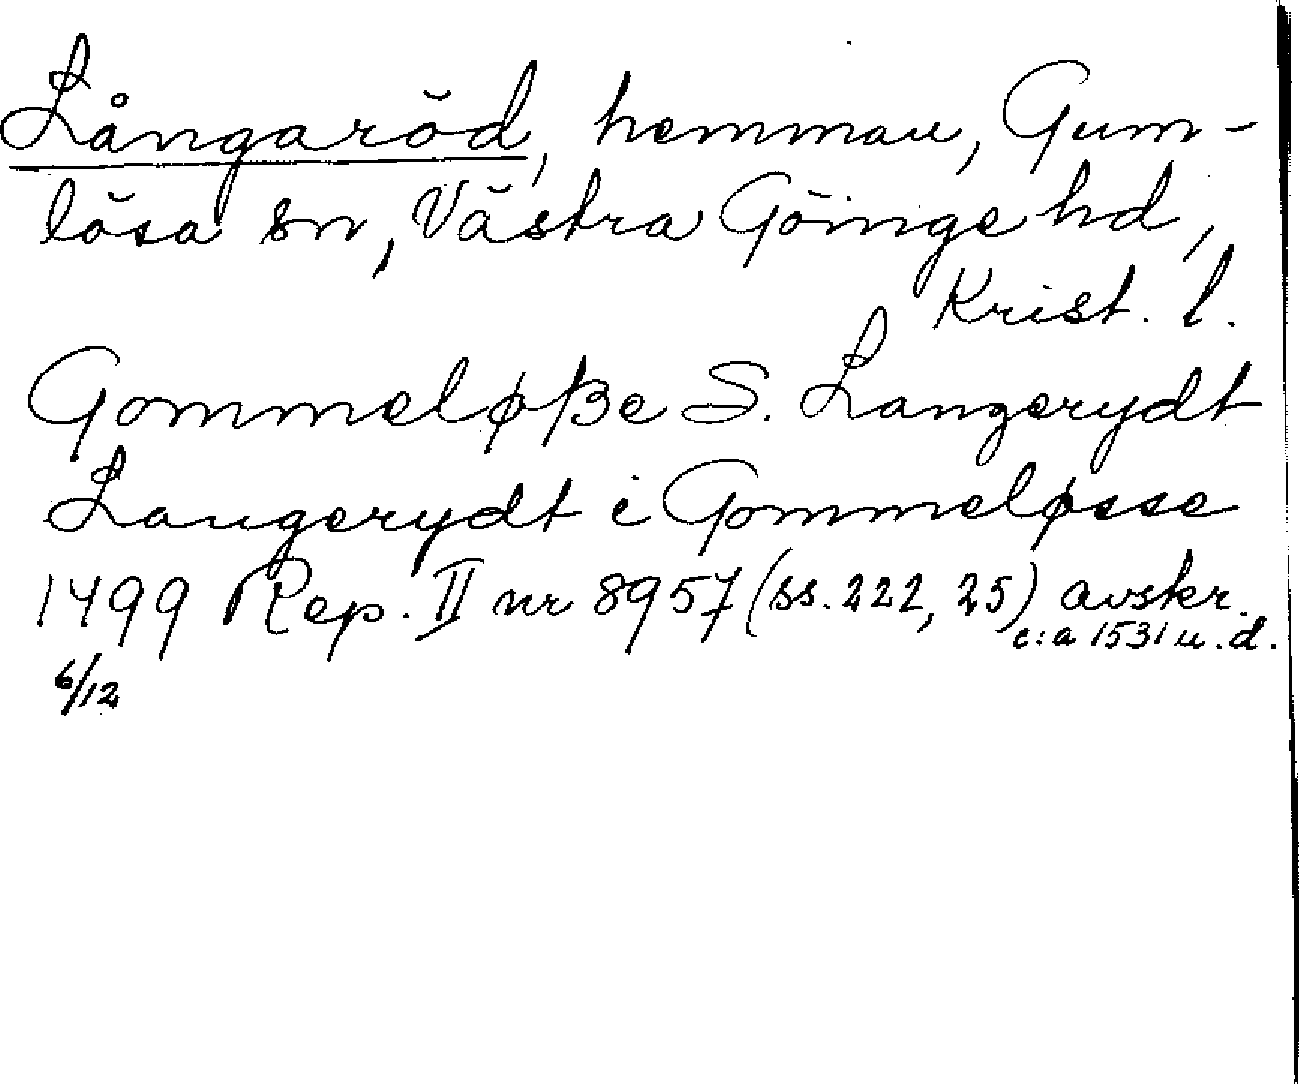 Långaröd, hemman, Gum-
lösa sn, Västra Göinge hd,
Krist. l.
Gommeløße S. Langerydt
Langerydt i Gommeløsse
1499 Rep. II nr 8957 (ss. 222, 25) avskr.
c:a 1531 u.d.
6/12